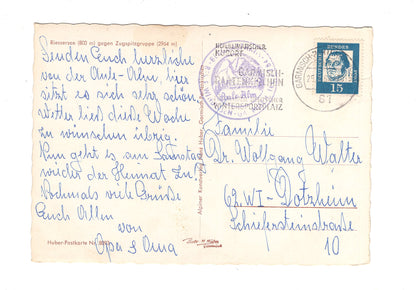 Riessersee (810 m) gegen Zugspitzgruppe (2964 m)
Senden Euch herrliche
von der Aule-Alm hier
sitzt es sich sehr schön
Wetter lies die Woche
zu wünschen übrig.
Nun geht es am Samstag
wieder der Heimat zu!
Nochmals viele Grüße
Euch Allen
von
Opa & Oma
Huber-Postkarte Nr.
HEILKLIMATISCHER
KURORT
GARMISCH-
PARTENKIRCHEN
WINTERSPORTPLATZ
Aule-Alm
GARMISCH
DEUTSCHE BUNDESPOST
15
Familie
Dr. Wolfgang Walter
62. WI-Dotzheim
Schiefersteinstraße
10